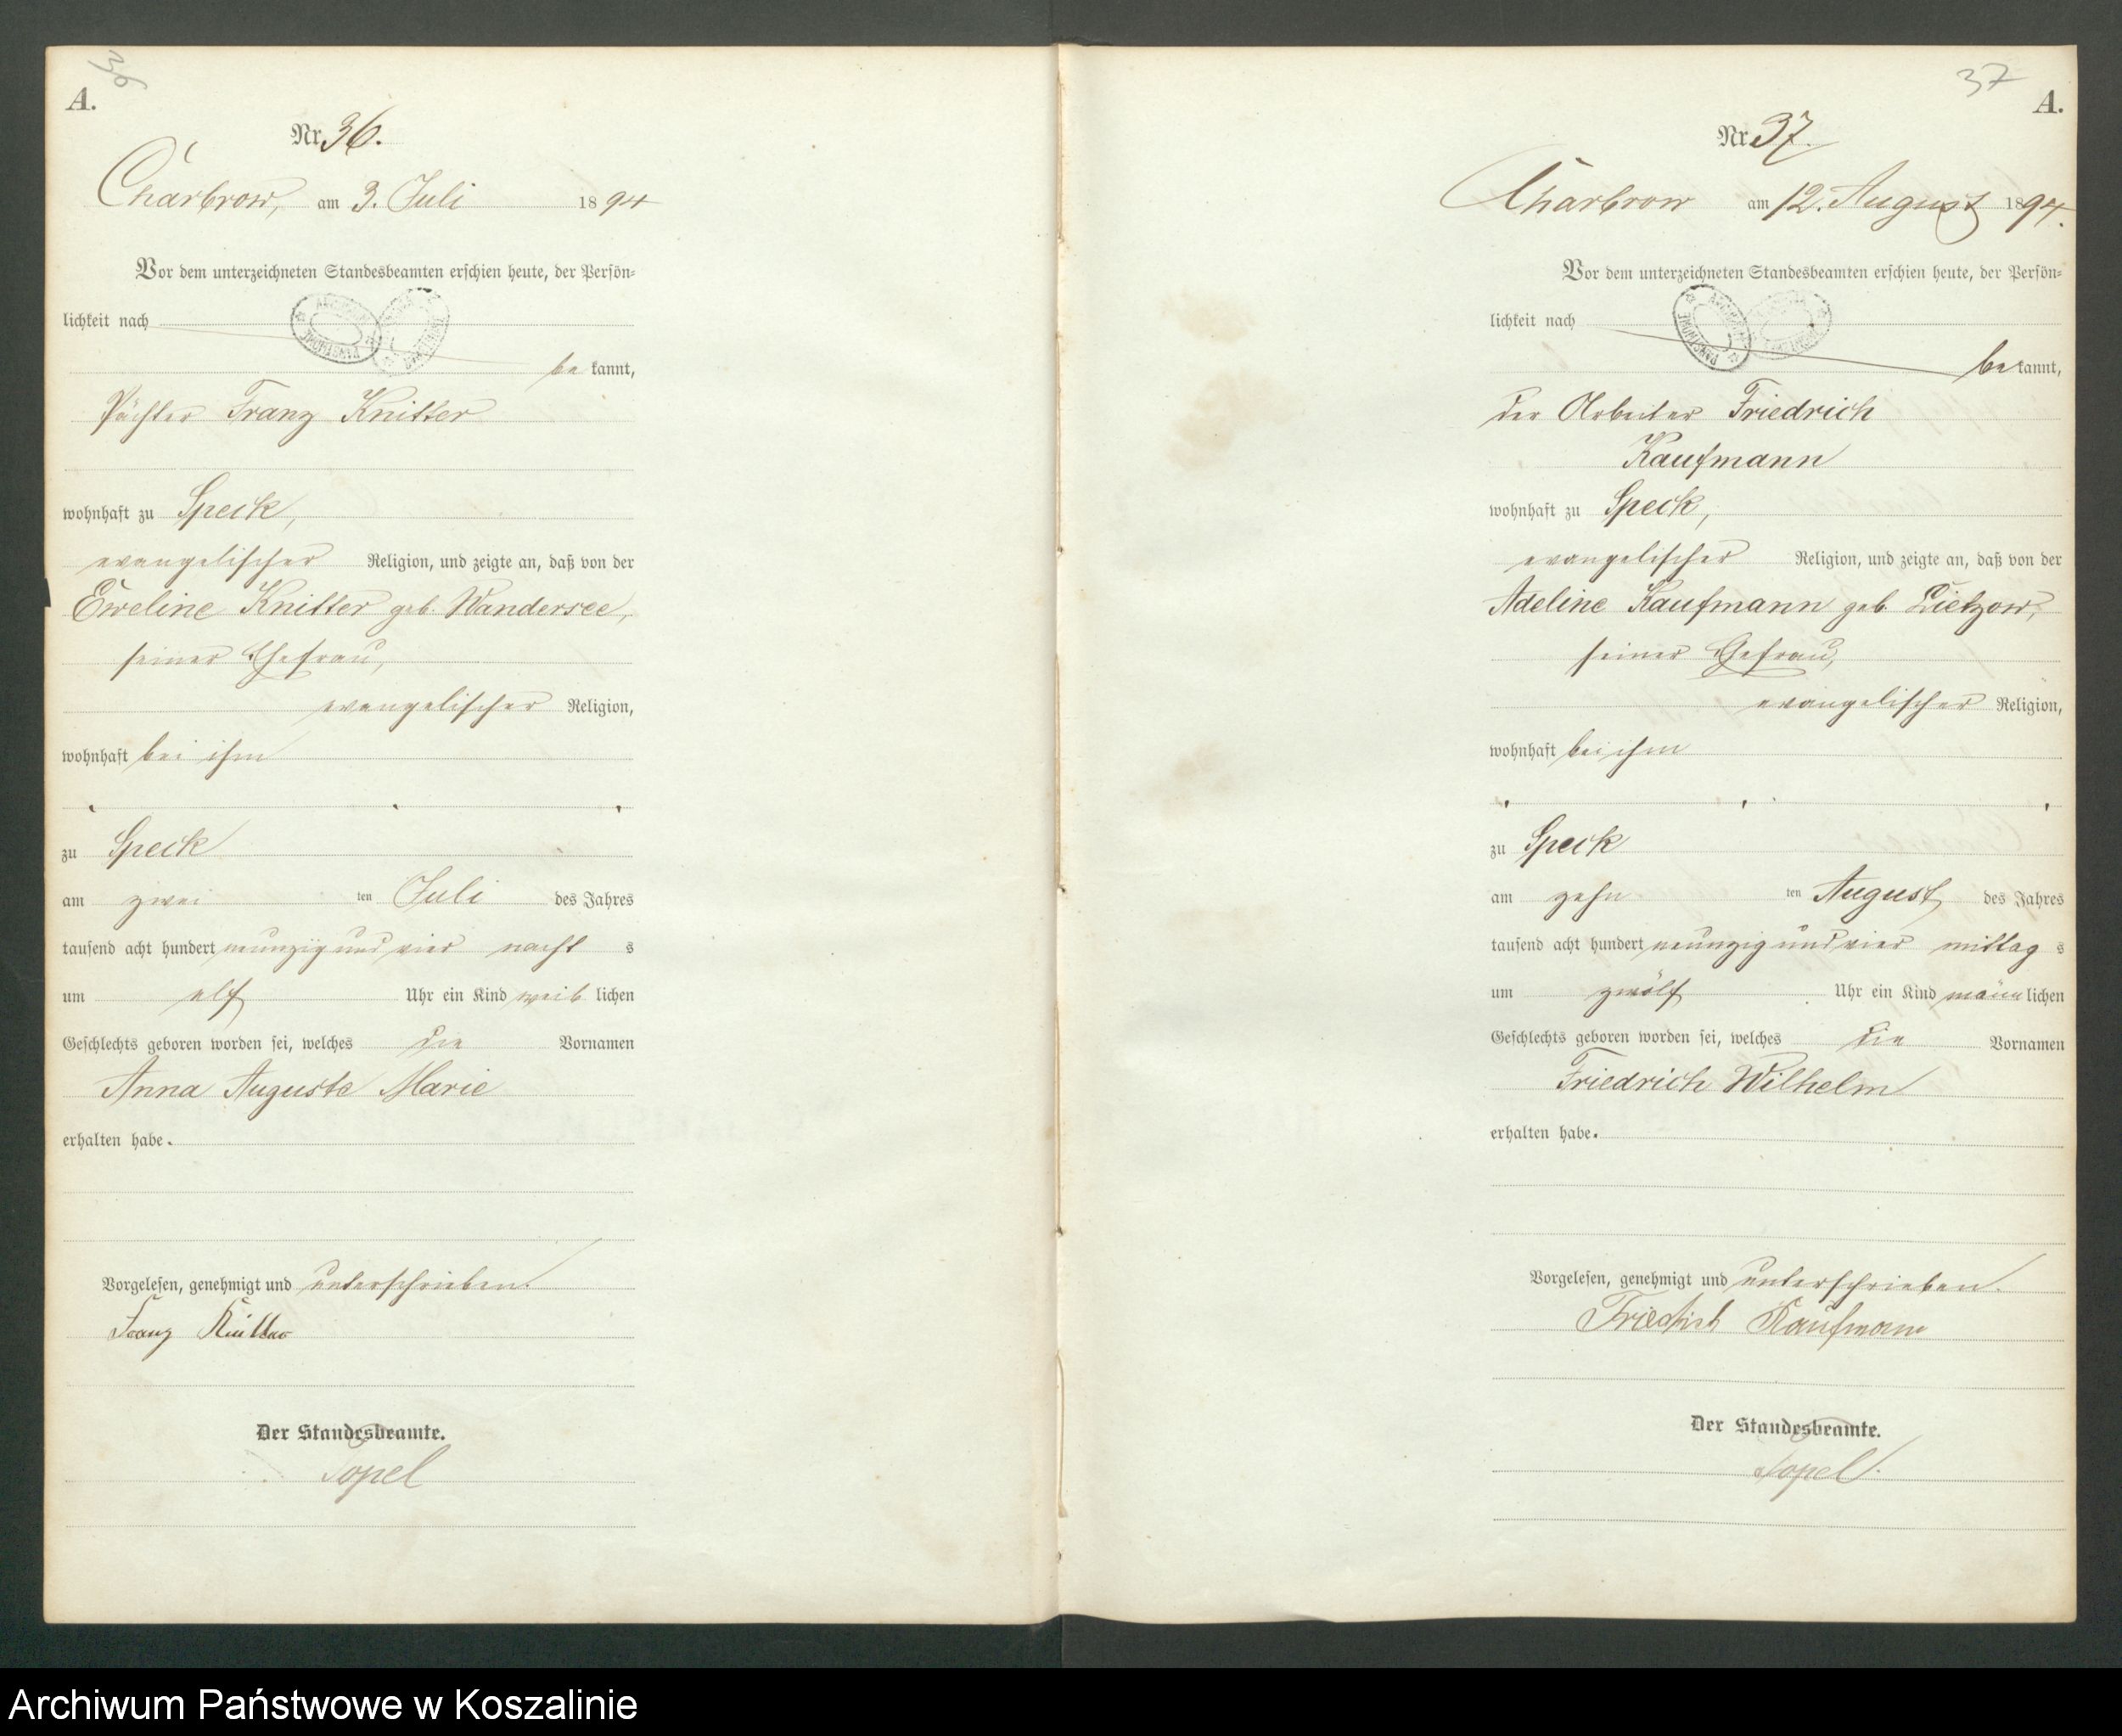 36
A.
Nr. 36.
Charbrow, am 3. Juli 1894
Vor dem unterzeichneten Standesbeamten erschien heute, der Persön-
lichkeit nach
bekannt,
Pächter Franz Knitter
wohnhaft zu Speck,
evangelischer Religion, und zeigte an, daß von der
Eweline Knitter geb. Wandersee,
seiner Ehefrau,
evangelischer Religion,
wohnhaft bei ihm
zu Speck
am zweiten Juli des Jahres
tausend acht hundert neunzig und vier nachts
um elf Uhr ein Kind weiblichen
Geschlechts geboren worden sei, welches die Vornamen
Anna Auguste Marie
erhalten habe.
Vorgelesen, genehmigt und unterschrieben.
Franz Knitter
Der Standesbeamte.
Topel
37
A.
Nr. 37.
Charbrow am 12. August 1894.
Vor dem unterzeichneten Standesbeamten erschien heute, der Persön-
lichkeit nach
bekannt,
der Arbeiter Friedrich
Kaufmann
wohnhaft zu Speck,
evangelischer Religion, und zeigte an, daß von der
Adeline Kaufmann geb. Dietzow,
seiner Ehefrau,
evangelischer Religion,
wohnhaft bei ihm
zu Speck
am zehnten August des Jahres
tausend acht hundert neunzig und vier mittags
um zwölf Uhr ein Kind männlichen
Geschlechts geboren worden sei, welches die Vornamen
Friedrich Wilhelm
erhalten habe.
Vorgelesen, genehmigt und unterschrieben.
Friedrich Kaufmann
Der Standesbeamte.
Topel.
Archiwum Państwowe w Koszalinie